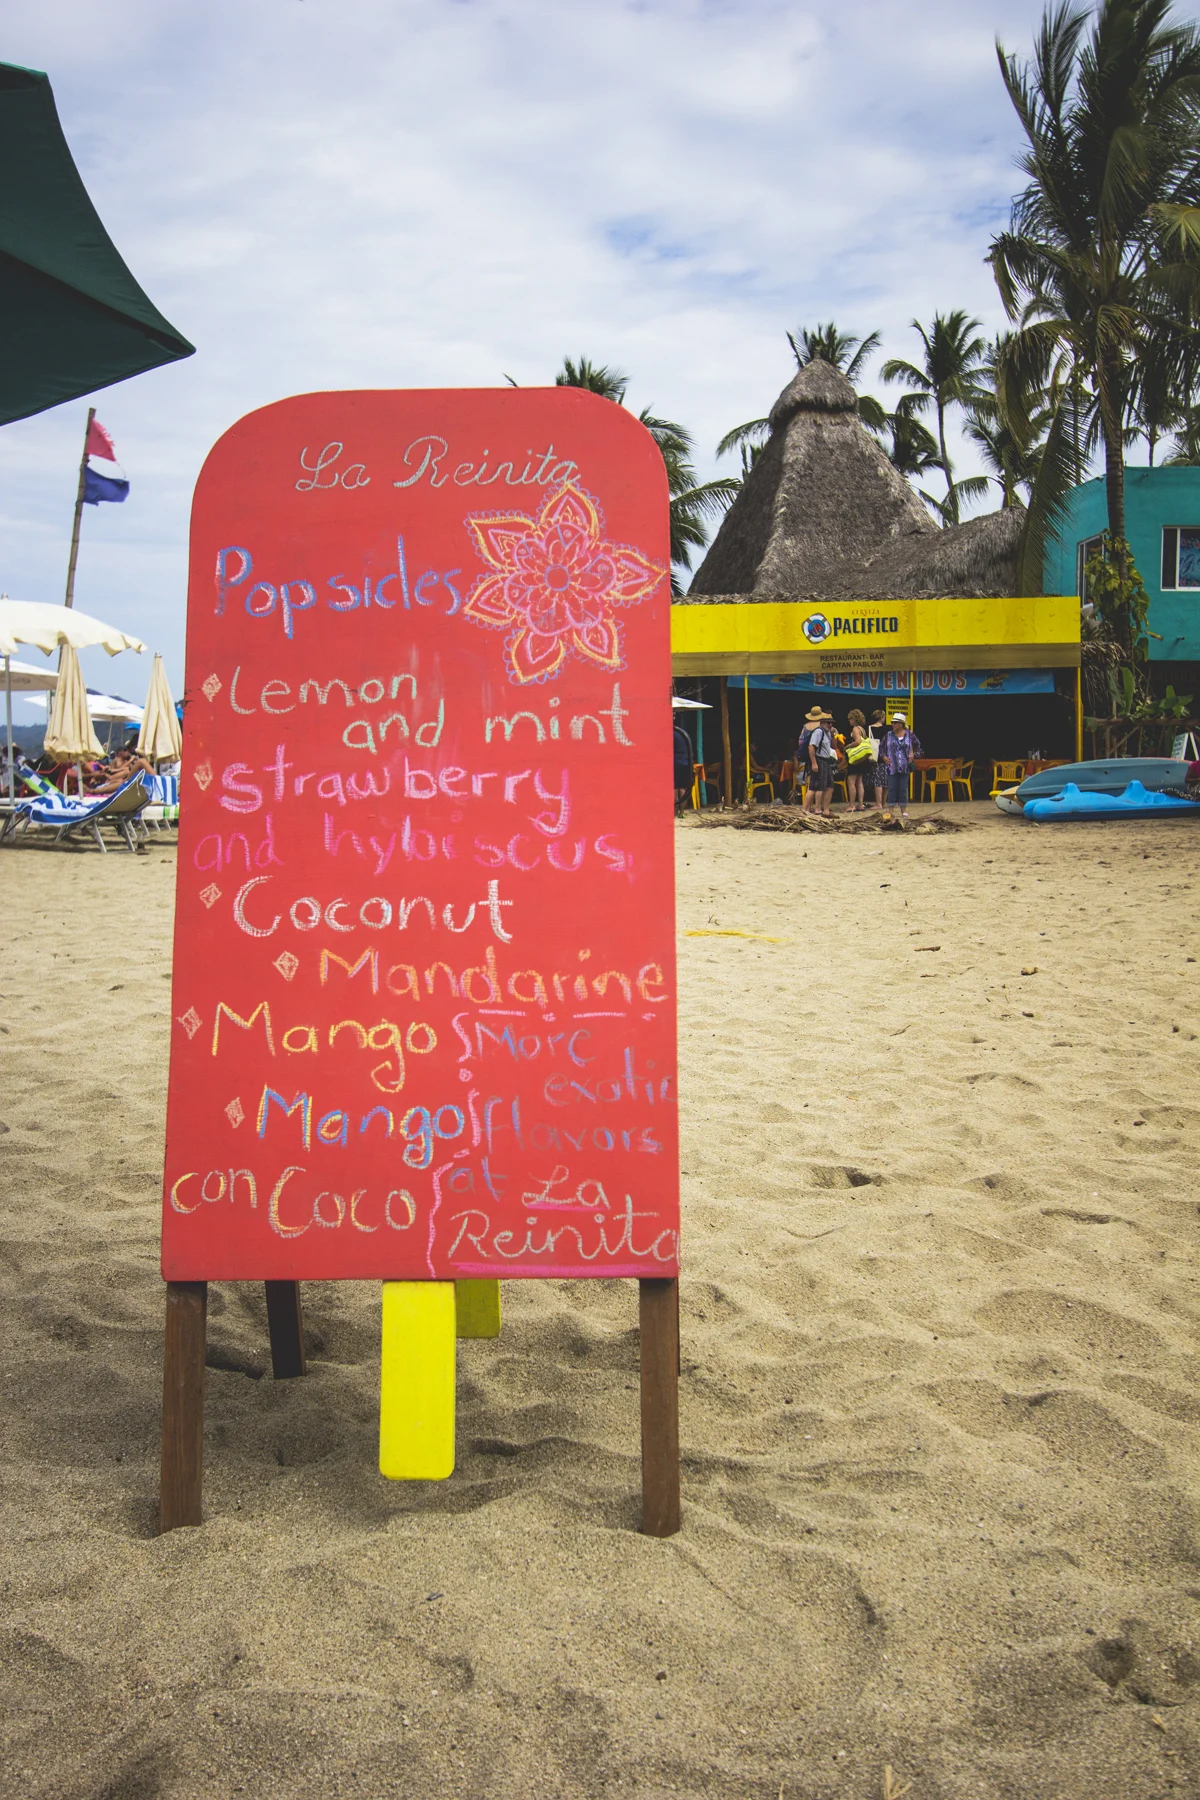 La Reinita
Popsicles
Lemon
and mint
Strawberry
and hybiscus
Coconut
Mandarine
Mango
Mango
con Coco
More
exotic
flavors
at La
Reinita
CERVEZA
PACIFICO
RESTAURANT-BAR
CAPITAN PABLO'S
BIENVENIDOS